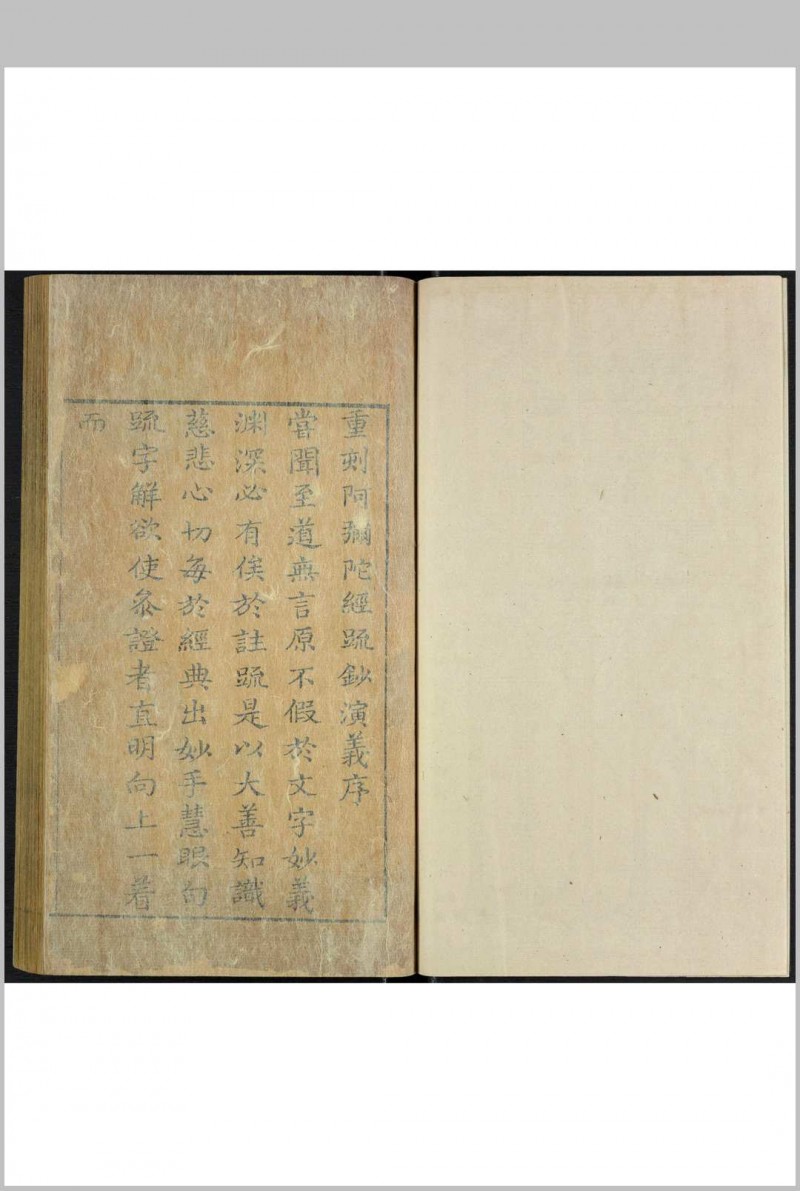 重刻阿彌陀經䟽鈔演義序
嘗聞至道無言原不假於文字妙義
渊深必有俟於註䟽是以大善知識
慈悲心切每於經典出妙手慧眼句
䟽字解欲使叅證者直明向上一着
而